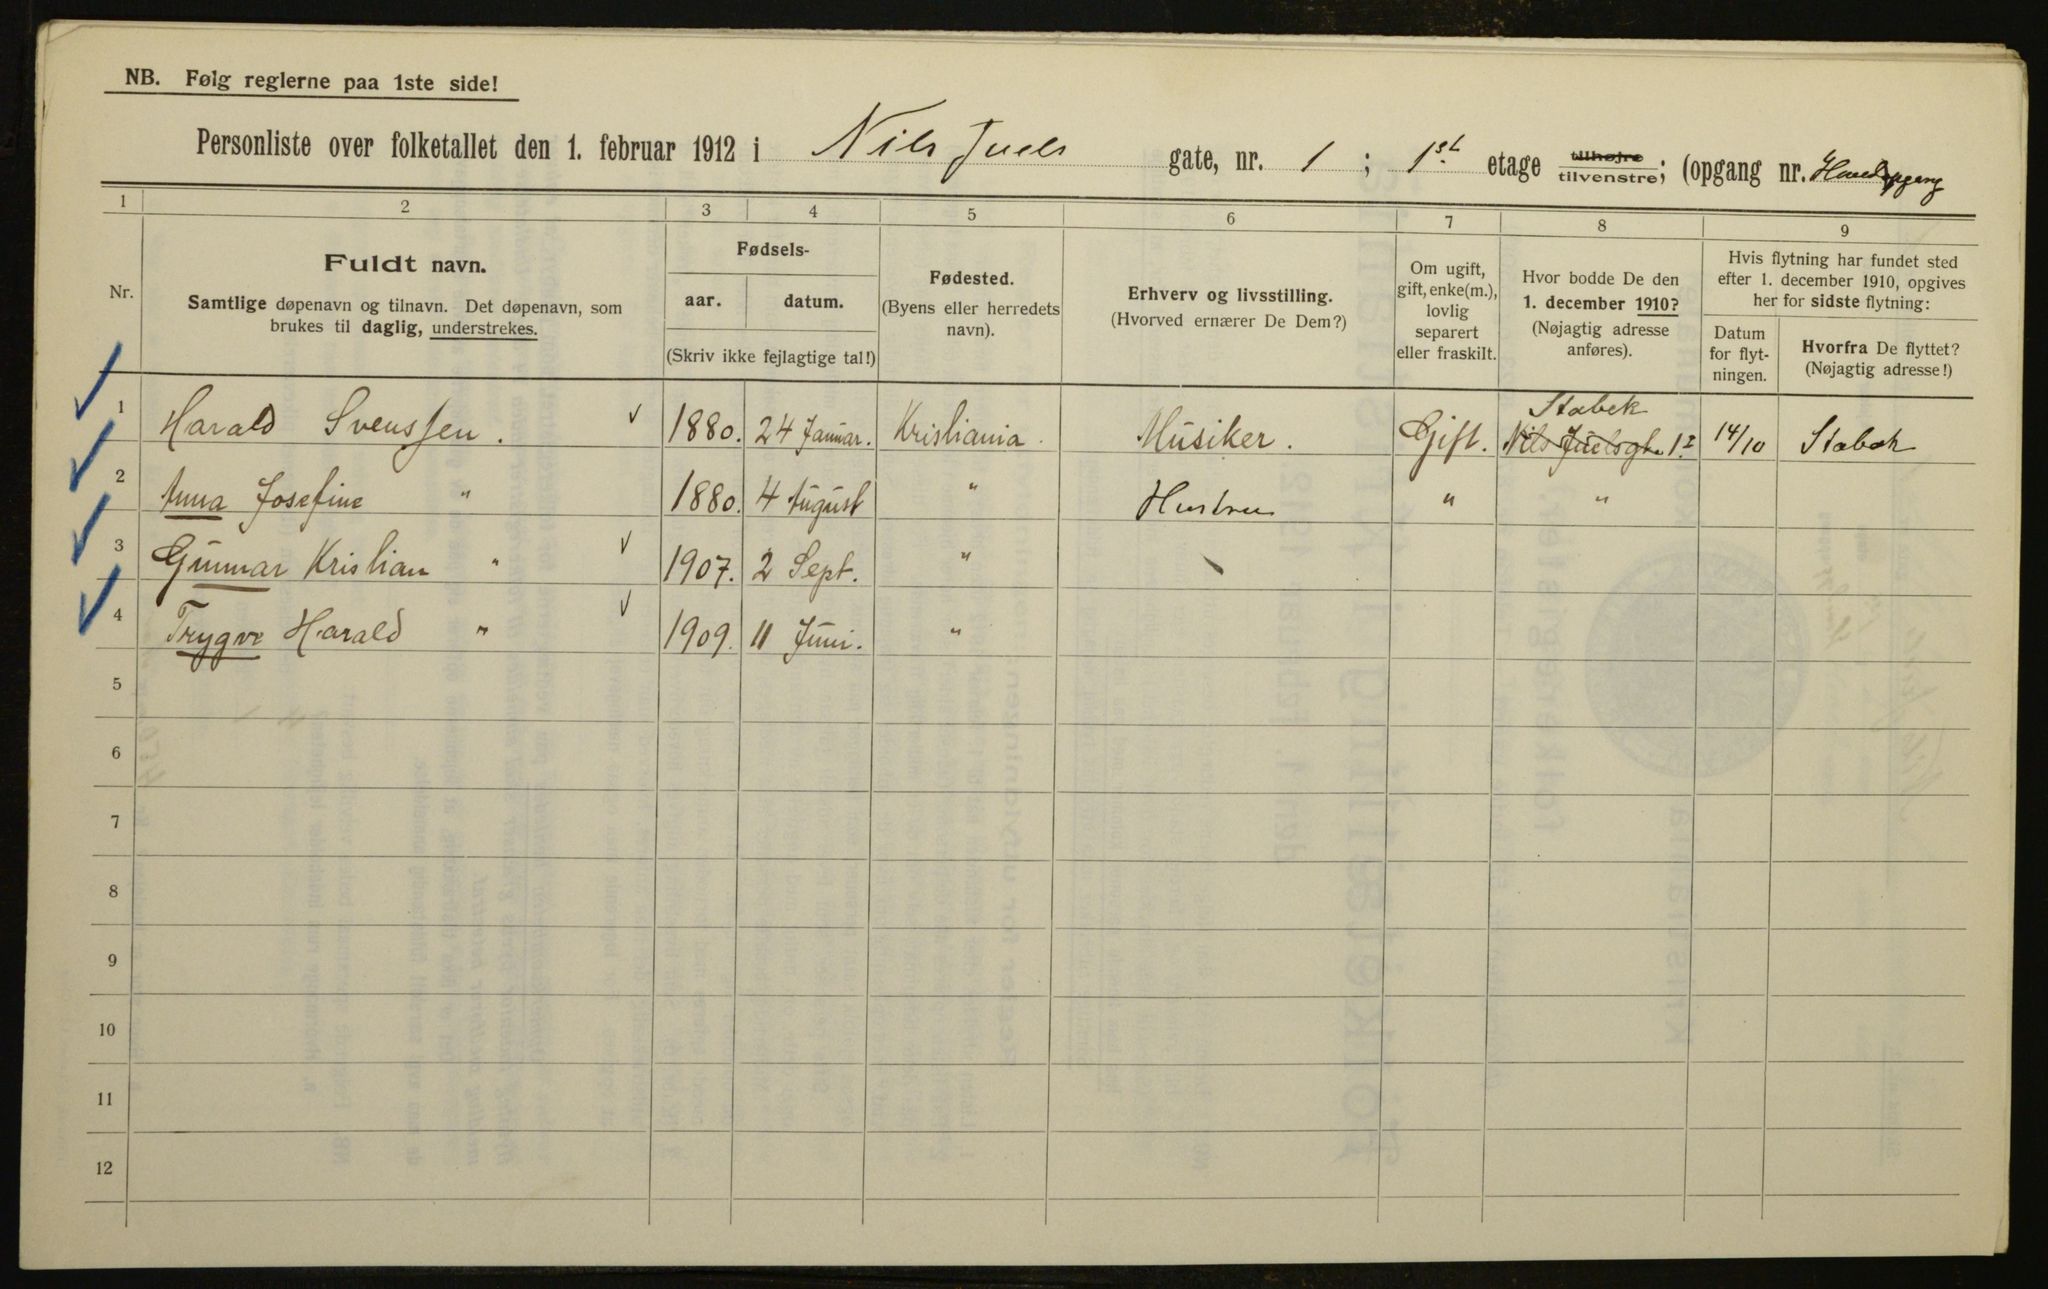 NB. Følg reglerne paa 1ste side!
Personliste over folketallet den 1. februar 1912 i Nils Juels gate, nr. 1 ; 1st etage tilhøjre tilvenstre; (opgang nr. Hovedopgang
1 2 3 4 5 6 7 8 9
Nr.
Fuldt navn.
Samtlige døpenavn og tilnavn. Det døpenavn, som
brukes til daglig, understrekes.
Fødsels-
aar. datum.
(Skriv ikke fejlagtige tal!)
Fødested.
(Byens eller herredets
navn).
Erhverv og livsstilling.
(Hvorved ernærer De Dem?)
Om ugift,
gift, enke(m.),
lovlig
separert
eller fraskilt.
Hvor bodde De den
1. december 1910?
(Nøjagtig adresse
anføres).
Hvis flytning har fundet sted
efter 1. december 1910, opgives
her for sidste flytning:
Datum
for flyt-
ningen.
Hvorfra De flyttet?
(Nøjagtig adresse!)
1 Harald Svenssen. 1880. 24 Januar. Kristiania. Musiker. Gift. Stabek Nils Juelsgt. 1 I 14/10 Stabæk
2 Anna Josefine " 1880. 4 August " Hustru " "
3 Gunnar Kristian " 1907. 2 Sept. "
4 Trygve Harald " 1909. 11 Juni. "
5
6
7
8
9
10
11
12